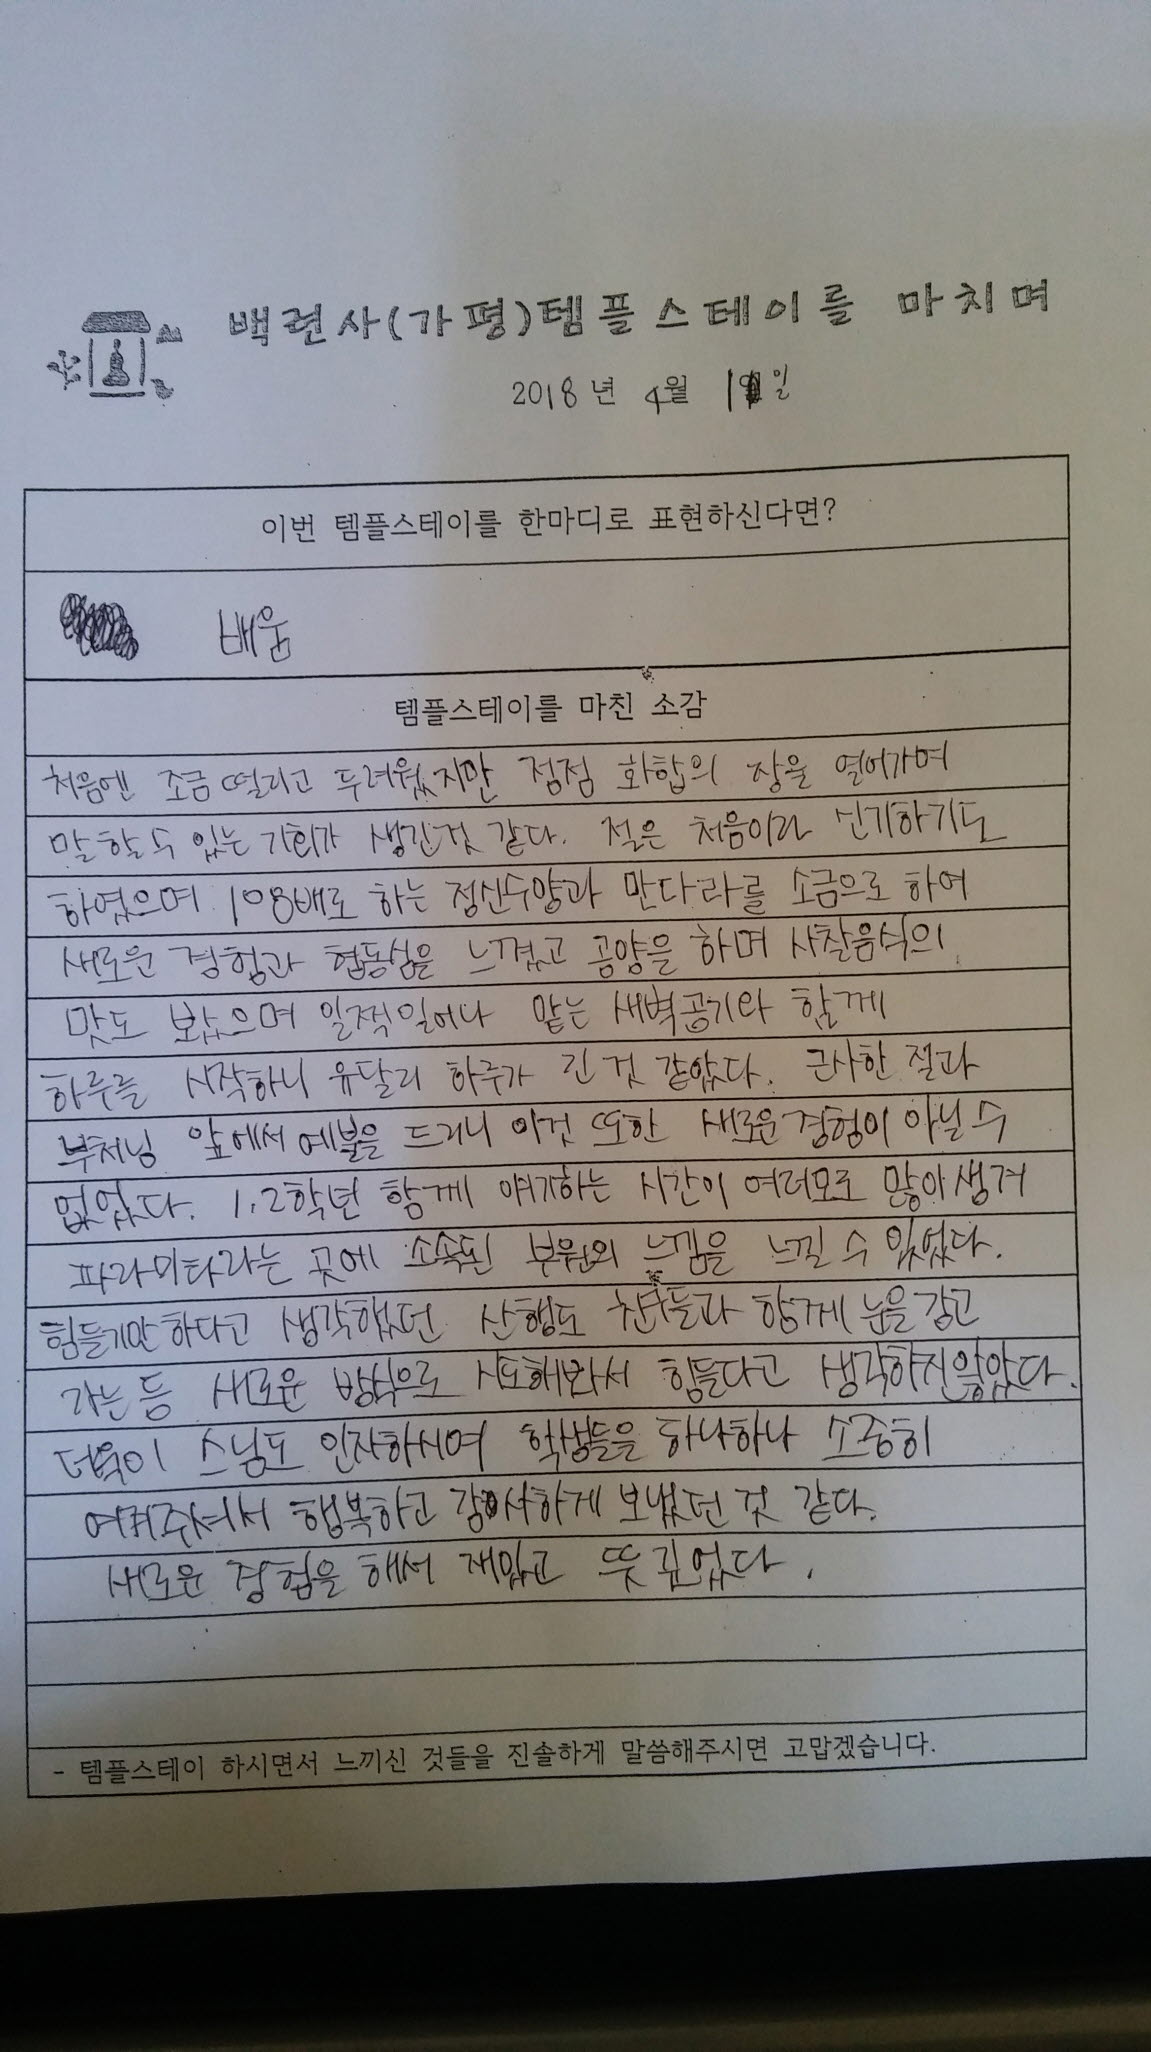 백련사(가평)템플스테이를 마치며
2018년 4월 1일
이번 템플스테이를 한마디로 표현하신다면?
배움
템플스테이를 마친 소감
처음엔 조금 떨리고 두려웠지만 점점 화합의 장을 열어가며
말할수 있는 기회가 생긴것 같다. 절은 처음이라 신기하기도
하였으며 108배로 하는 정신수양과 만다라를 소금으로 하여
새로운 경험과 협동심을 느꼈고 공양을 하며 사찰음식의
맛도 봤으며 일찍일어나 맡는 새벽공기와 함께
하루를 시작하니 유달리 하루가 긴 것 같았다. 근사한 절과
부처님 앞에서 예불을 드리니 이것 또한 새로운경험이 아닐 수
없었다. 1,2학년 함께 얘기하는 시간이 여러모로 많아생겨
파라미타라는 곳에 소속된 부원의 느낌을 느낄 수 있었다.
힘들기만하다고 생각했던 산행도 친구들과 함께 눈을 감고
가는 등 새로운 방식으로 시도해봐서 힘들다고 생각하지않았다.
더욱이 스님도 인자하시며 학생들을 하나하나 소중히
여겨주셔서 행복하고 감사하게 보냈던 것 같다.
새로운 경험을 해서 재밌고 뜻깊었다.
- 템플스테이 하시면서 느끼신 것들을 진솔하게 말씀해주시면 고맙겠습니다.